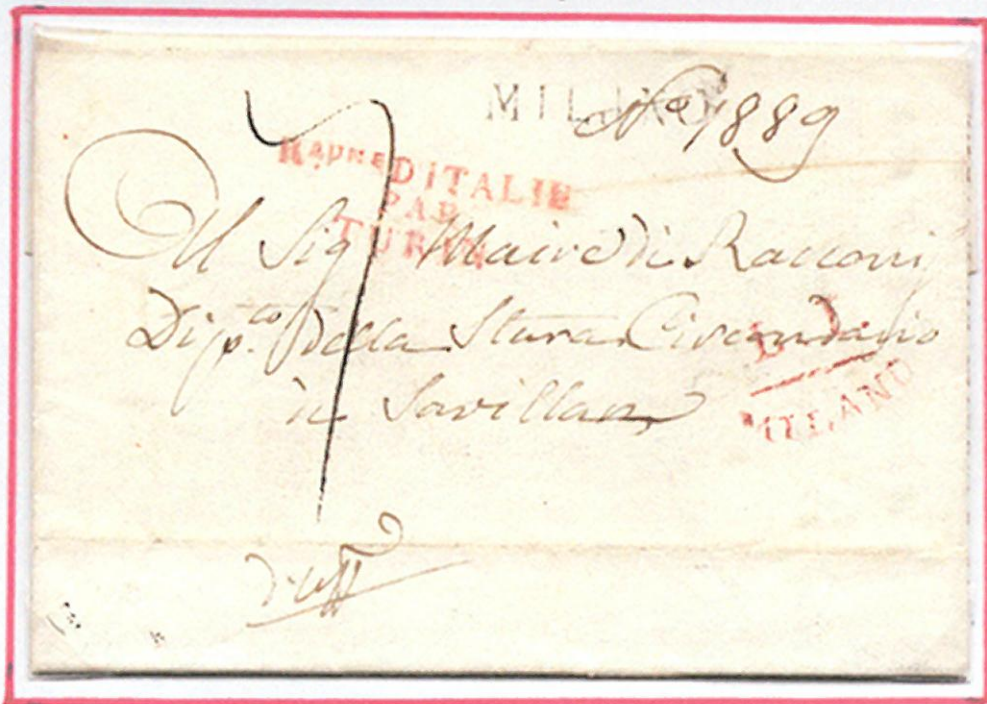 MILANO
No. 1889
R.aume D'ITALIE
PAR
TURIN
7
Al Sig.r Maire di Racconi
Dip.to della Stura Circondario
L. I.
MILANO
in Savillan
d'uff